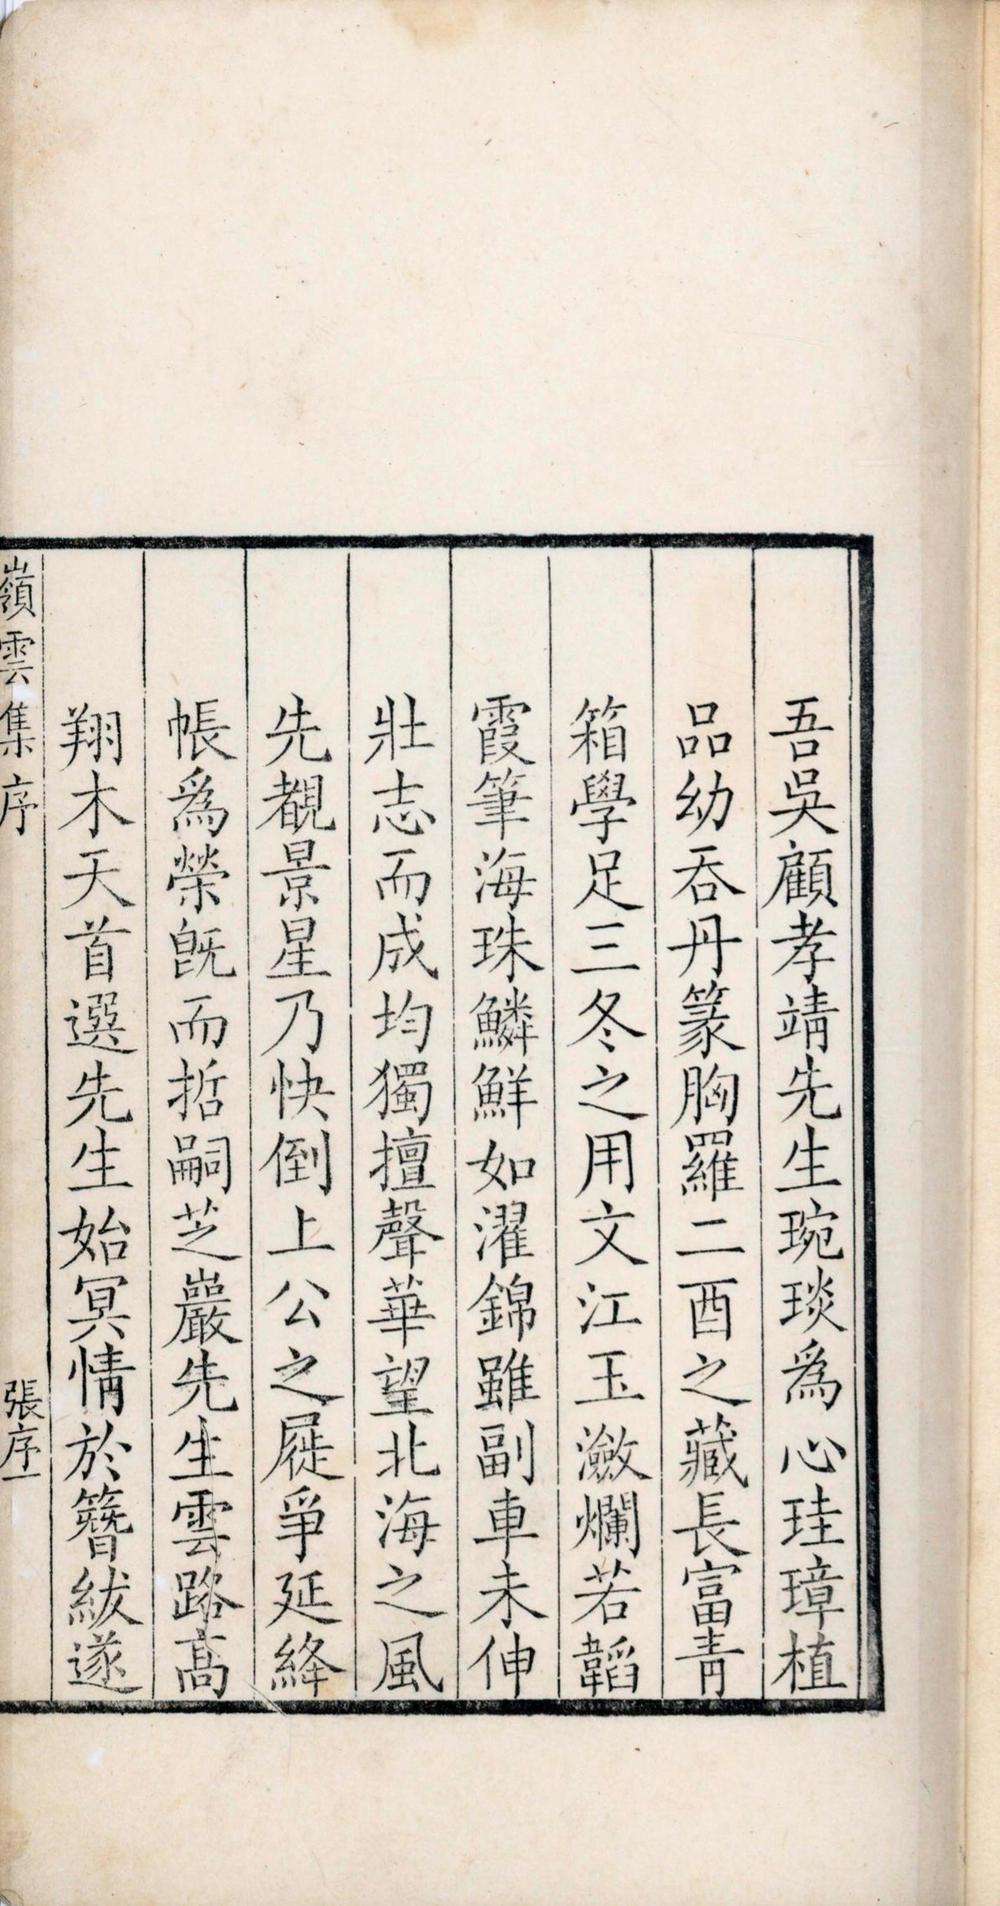 吾吳顧孝靖先生琬琰為心珪璋植
品幼吞丹篆胸羅二酉之藏長富青
箱學足三冬之用文江玉瀲爛若韜
霞筆海珠鱗鮮如濯錦雖副車未伸
壯志而成均獨擅聲華望北海之風
先覩景星乃快倒上公之屣爭延絳
帳為榮旣而哲嗣芝巖先生雲路高
翔木天首選先生始冥情於簪紱遂
嶺雲集序
張序一